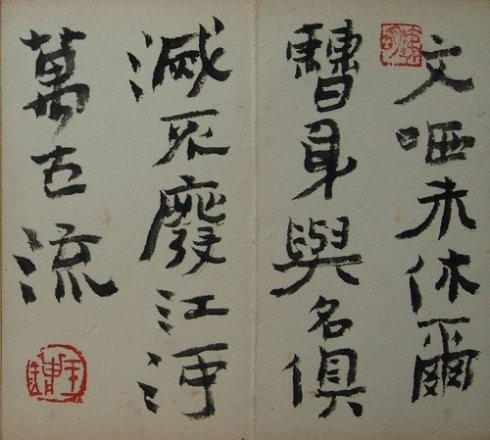 文哂未休爾
曹身與名俱
滅不廢江河
萬古流